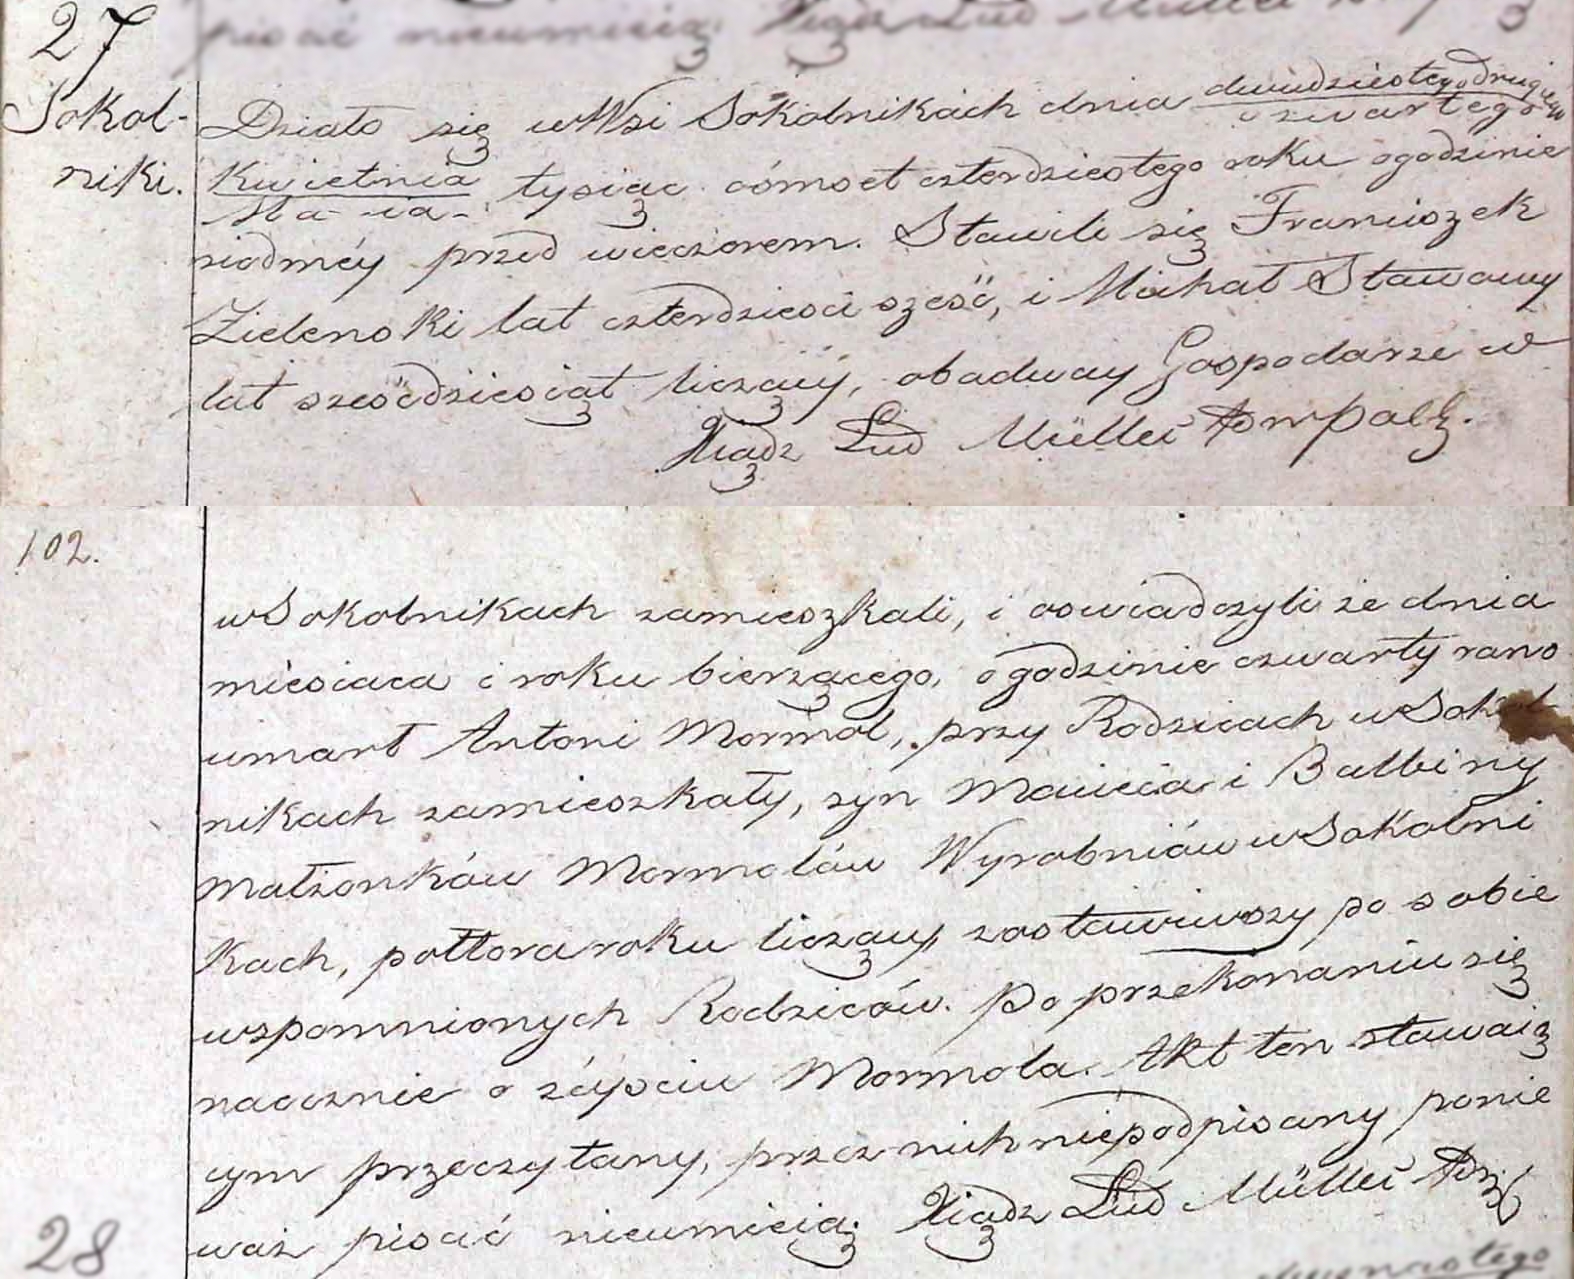 27
Sokol-
niki.
Działo się w Wsi Sokolnikach dnia dwudziestego drugiego
czwartego
Kwietnia tysiąc ośmset czterdziestego roku o godzinie
Ma-ia-
siódméy przed wieczorem. Stawili się Franciszek
Zielenski lat czterdzieści sześć, i Michał Stawowy
lat sześćdziesiąt liczący, obadway Gospodarze w
Xiądz Lud Müller
102.
w Sokolnikach zamieszkali, i oświadczyli że dnia
miesiaca i roku bierzącego, o godzinie czwarty rano
umarł Antoni Mormol, przy Rodzicach w Sokol
nikach zamieszkały, syn Macieia i Balbiny
małżonków Mormolów Wyrobniów w Sokolni
kach, półtora roku liczący, zostawiwszy po sobie
wspomnionych Rodziców. Po przekonaniu się
naocznie o zéyściu Mormola. Akt ten stawaią
cym przeczytany, przez nich niepodpisany ponie
waż pisać nieumieią. Xiądz Lud Müller
28